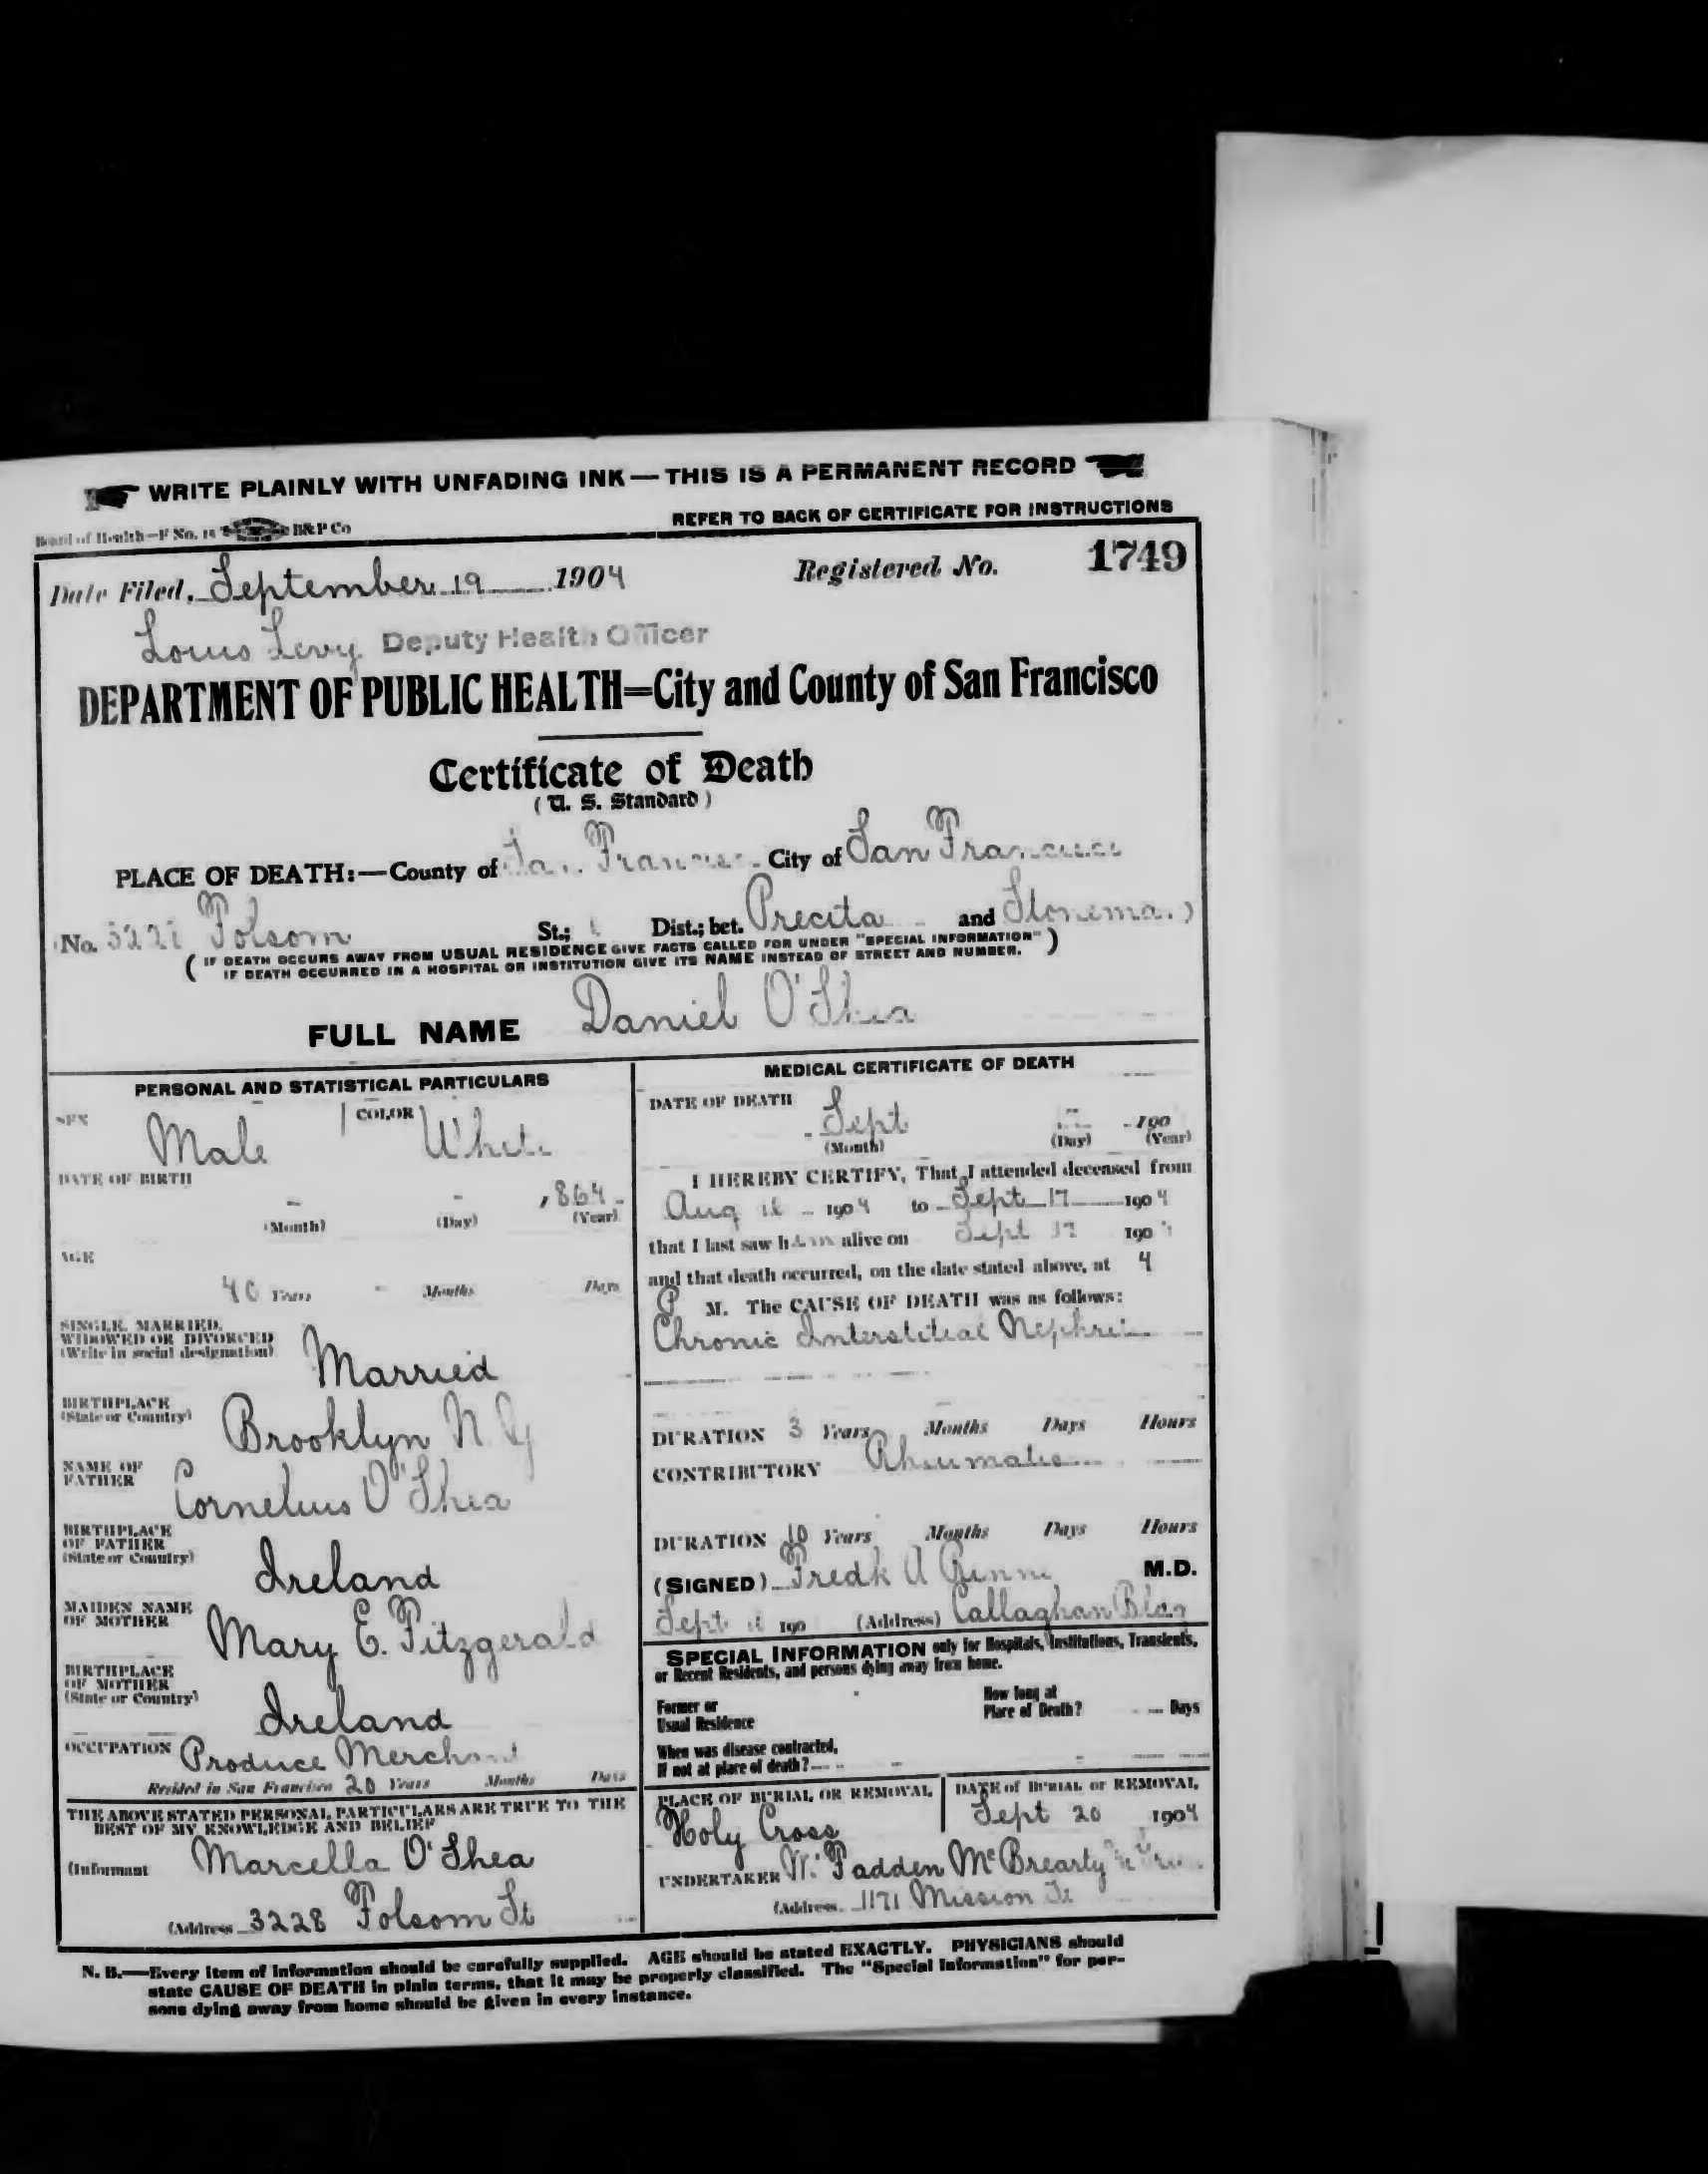 WRITE PLAINLY WITH UNFADING INK — THIS IS A PERMANENT RECORD
Board of Health—F No. 15 B&P Co
REFER TO BACK OF CERTIFICATE FOR INSTRUCTIONS
Date Filed, September 19 1904 Registered No. 1749
Louis Levy Deputy Health Officer
DEPARTMENT OF PUBLIC HEALTH=City and County of San Francisco
Certificate of Death
( U. S. Standard )
PLACE OF DEATH:—County of San Francisco City of San Francisco
(No. Folsom St.; Dist.; bet. Precita and Stoneman )
( IF DEATH OCCURS AWAY FROM USUAL RESIDENCE GIVE FACTS CALLED FOR UNDER "SPECIAL INFORMATION"
IF DEATH OCCURRED IN A HOSPITAL OR INSTITUTION GIVE ITS NAME INSTEAD OF STREET AND NUMBER. )
FULL NAME Daniel O'Shea
PERSONAL AND STATISTICAL PARTICULARS
SEX Male COLOR White
DATE OF BIRTH
1864
(Month) (Day) (Year)
AGE
40 Years Months Days
SINGLE, MARRIED,
WIDOWED OR DIVORCED
(Write in social designation) Married
BIRTHPLACE
(State or Country) Brooklyn N Y
NAME OF
FATHER Cornelius O'Shea
BIRTHPLACE
OF FATHER
(State or Country) Ireland
MAIDEN NAME
OF MOTHER Mary E. Fitzgerald
BIRTHPLACE
OF MOTHER
(State or Country) Ireland
OCCUPATION Produce Merchant
Resided in San Francisco 20 Years Months Days
THE ABOVE STATED PERSONAL PARTICULARS ARE TRUE TO THE
BEST OF MY KNOWLEDGE AND BELIEF
(Informant Marcella O'Shea
(Address 3228 Folsom St
MEDICAL CERTIFICATE OF DEATH
DATE OF DEATH
Sept 190
(Month) (Day) (Year)
I HEREBY CERTIFY, That I attended deceased from
Aug 1904 to Sept 17 1904
that I last saw him alive on Sept 17 190
and that death occurred, on the date stated above, at 4
P M. The CAUSE OF DEATH was as follows:
Chronic Interstitial Nephritis
DURATION 3 Years Months Days Hours
CONTRIBUTORY
DURATION 10 Years Months Days Hours
(SIGNED) Fredk A M.D.
Sept 190 (Address) Callaghan Bldg
SPECIAL INFORMATION only for Hospitals, Institutions, Transients,
or Recent Residents, and persons dying away from home.
Former or
Usual Residence
How long at
Place of Death? Days
When was disease contracted,
If not at place of death?
PLACE OF BURIAL OR REMOVAL
Holy Cross
DATE of BURIAL or REMOVAL
Sept 20 1904
UNDERTAKER McFadden McBrearty
(Address 1171 Mission St
N. B.—Every item of information should be carefully supplied. AGE should be stated EXACTLY. PHYSICIANS should
state CAUSE OF DEATH in plain terms, that it may be properly classified. The "Special Information" for per-
sons dying away from home should be given in every instance.